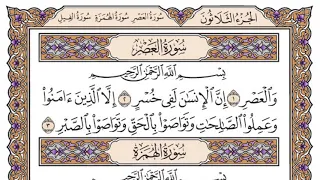 الجزء الثلاثون سورة العصر سورة الهمزة سورة الفيل
سُورَةُ الْعَصْرِ
بِسْمِ اللَّهِ الرَّحْمَٰنِ الرَّحِيمِ
وَالْعَصْرِ ١ إِنَّ الْإِنسَٰنَ لَفِى خُسْرٍ ٢ إِلَّا الَّذِينَ ءَامَنُوا۟
وَعَمِلُوا۟ الصَّٰلِحَٰتِ وَتَوَاصَوْا۟ بِالْحَقِّ وَتَوَاصَوْا۟ بِالصَّبْرِ ٣
سُورَةُ الْهُمَزَةِ
بِسْمِ اللَّهِ الرَّحْمَٰنِ الرَّحِيمِ